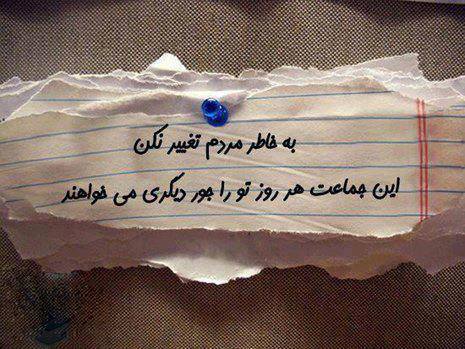 به خاطر مردم تغییر نکن
این جماعت هر روز تو را جور دیگری می خواهند